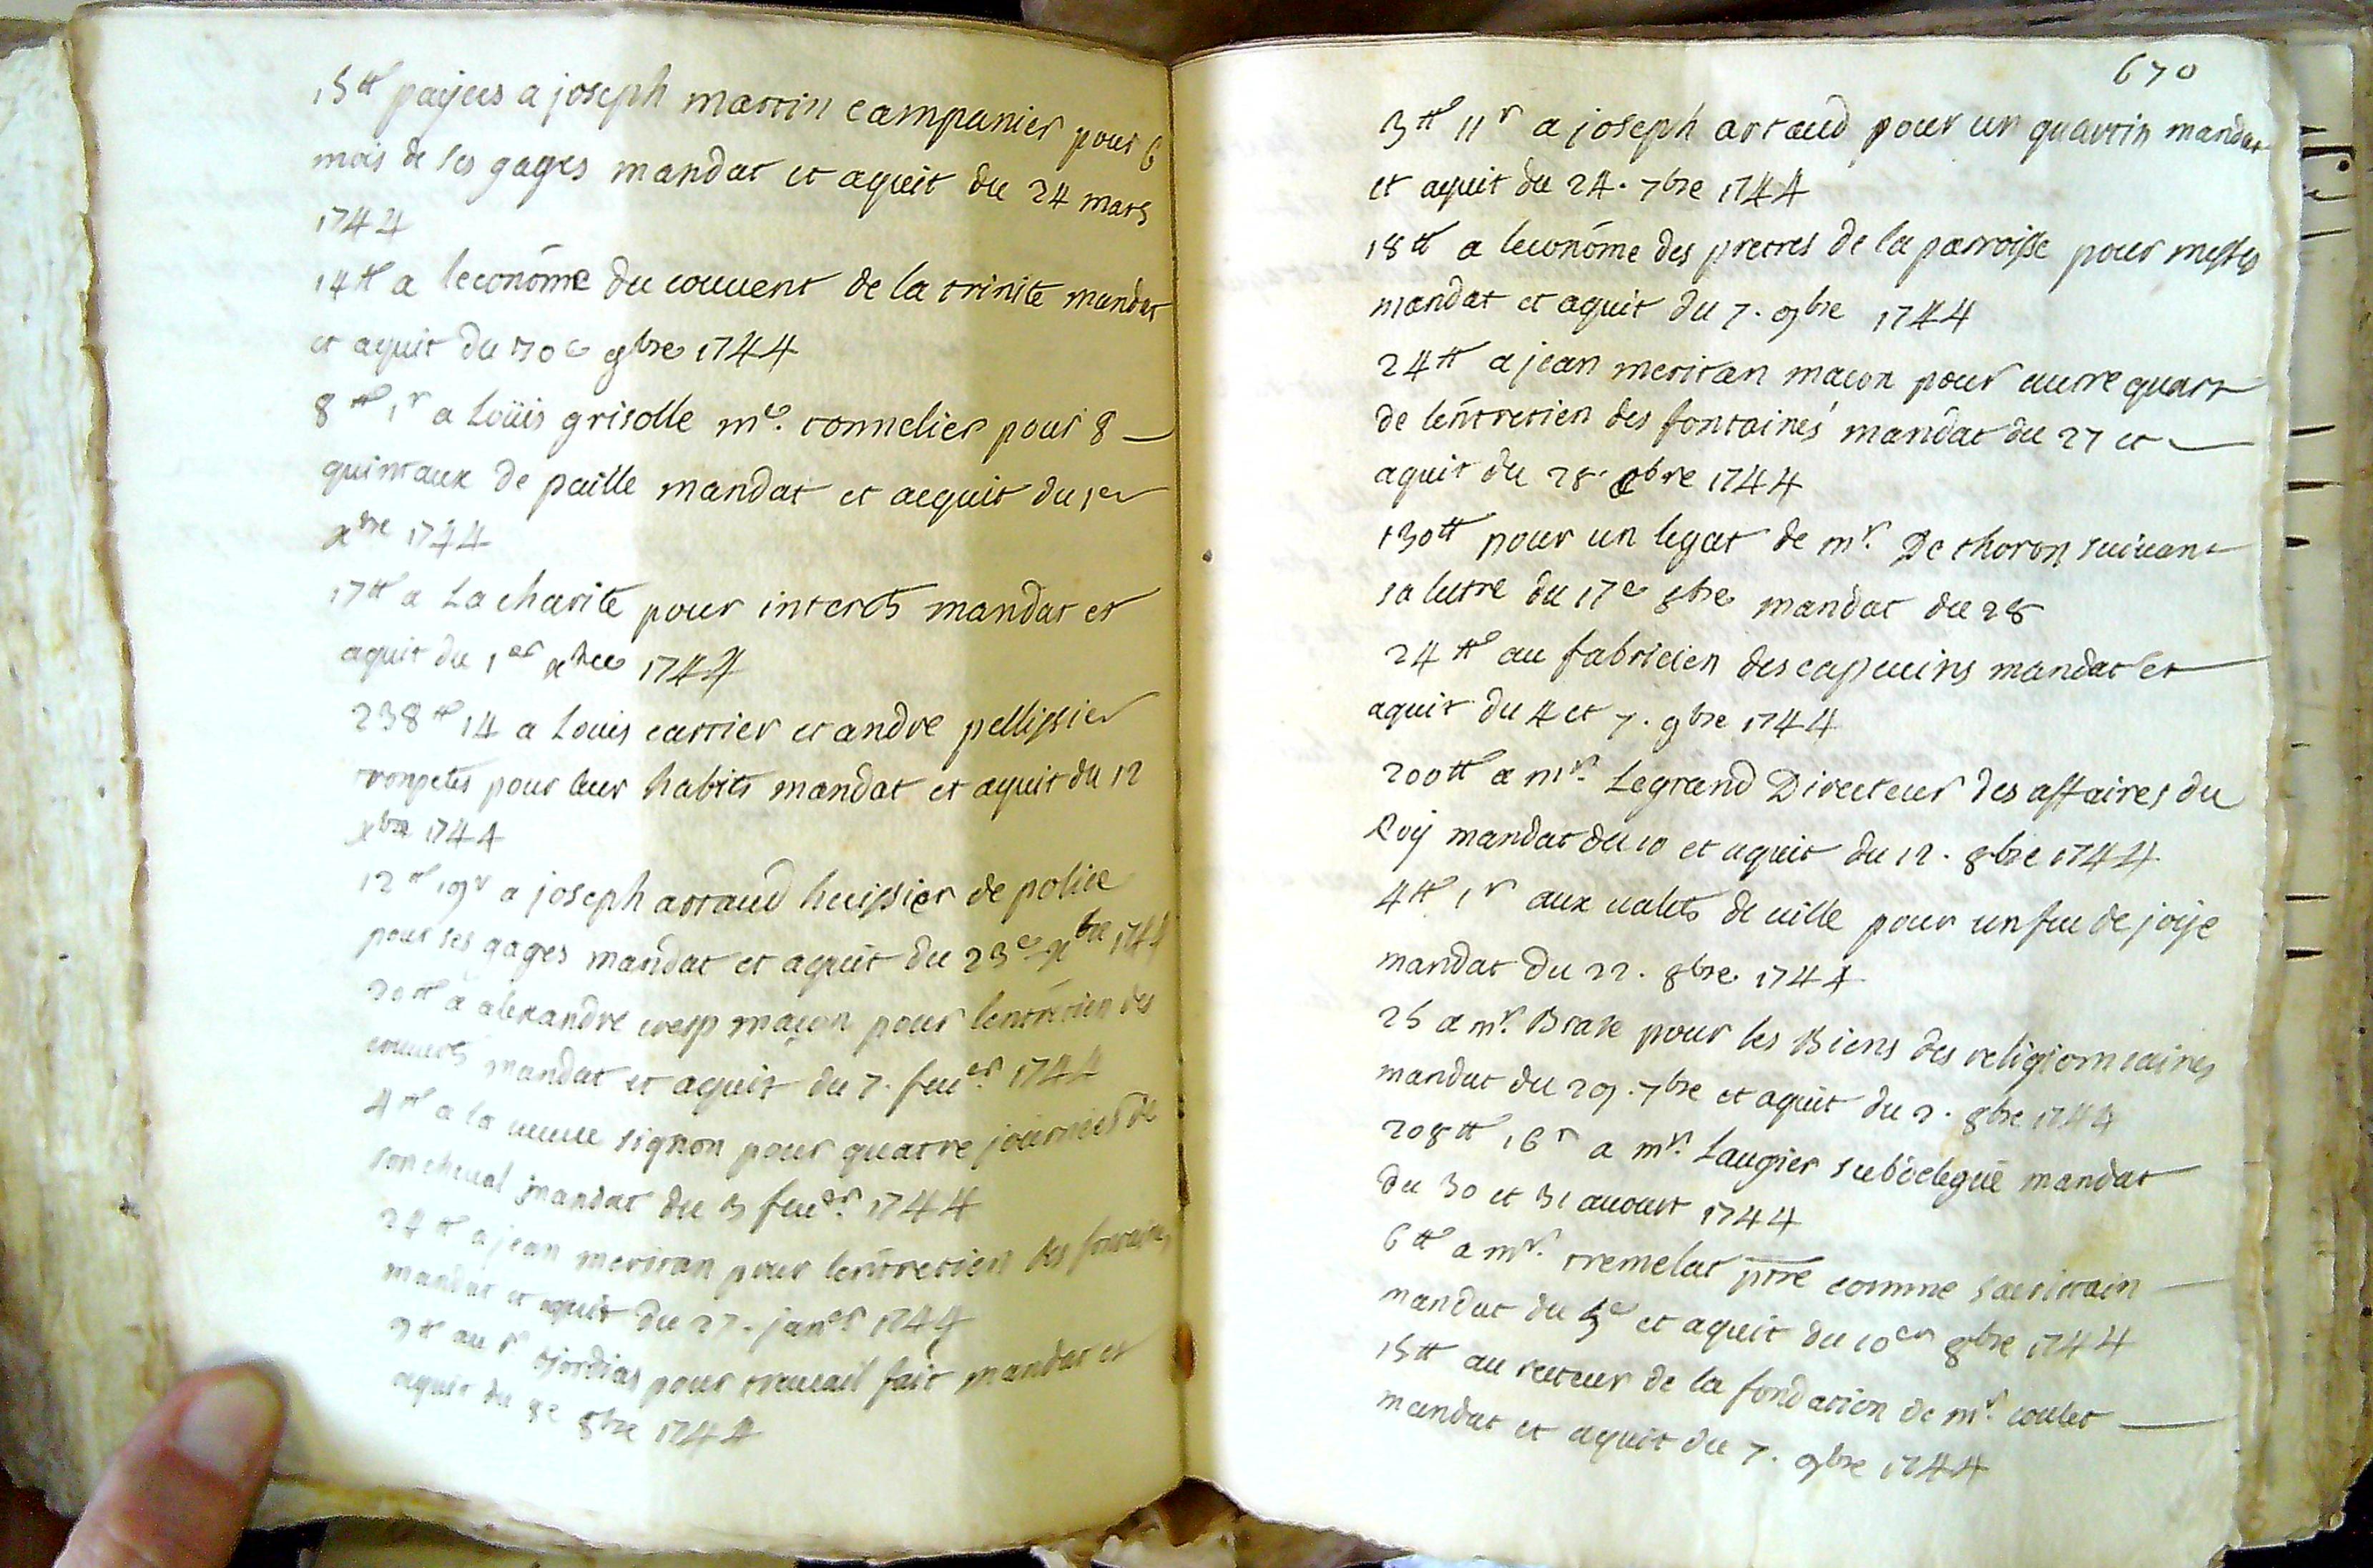 15# payees a joseph martin campanier pour 6
mois de ses gages mandat et aquit du 24 mars
1744
14# a leconóme du couuent de la trinité mandat
et aquit du 30e 9bre 1744
8# 1s a Loüis grisolle me. tonnelier pour 8 —
quintaux de paille mandat et acquit du 1er
xbre 1744
17# a La charité pour interets mandat et
aquit du 1er xbre 1744
238# 14 a Louis cartier et andre pellissier
tronpetes pour leur habits mandat et aquit du 12
xbre 1744
12# 19s a joseph artaud huissier de police
pour ses gages mandat et aquit du 23e xbre 1744
20# a alexandre cresp maçon pour lentretien des
couuerts mandat et aquit du 7. feuer. 1744
4# a la ueuue signon pour quatre journées de
son cheual mandat du 3 feuer. 1744
24# a jean meritan pour lentretien des fontaines
mandat et aquit du 27. janer 1744
9# au sr pour trauail fait mandat et
aquit du 8e 8bre 1744
670
3# 11s a joseph artaud pour un quartin mandat
et aquit du 24. 7bre 1744
18# a leconóme des pretres de la parroisse pour messes
mandat et aquit du 7. 9bre 1744
24# a jean meritan macon pour autre quart
de lentretien des fontaines mandat du 27 et —
aquit du 28. 8bre 1744
130# pour un legat de mr. De thoron suiuant
sa lettre du 17e 8bre mandat du 28
24# au fabricien des capucins mandat et
aquit du 4 et 7. 9bre 1744
200# a mr. Legrand Directeur des affaires du
Roy mandat du 10 et aquit du 12. 8bre 1744
4# 1s aux ualets de uille pour un feu de joye
mandat du 22. 8bre 1744
25 a mr. Brase pour les Biens des religionnaires
mandat du 29. 7bre et aquit du 2. 8bre 1744
208# 16s a mr. Laugier subdelegué mandat
du 30 et 31 auoust 1744
6# a mr. tremelat ptre comme sacristain —
mandat du 3e et aquit du 10e 8bre 1744
15# au recteur de la fondation de mr. coulet —
mandat et aquit du 7. 9bre 1744